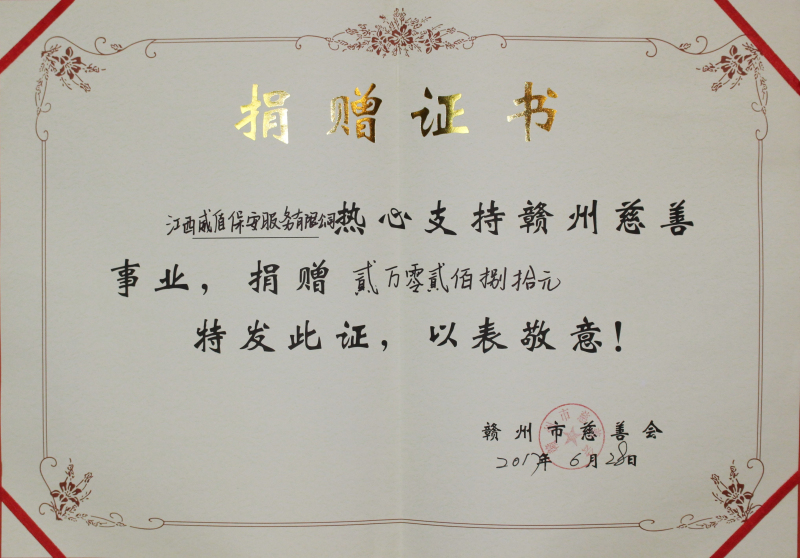 捐赠证书
江西威盾保安服务有限公司热心支持赣州慈善
事业，捐赠 贰万零贰佰捌拾元
特发此证，以表敬意！
赣州市慈善会
2017年6月28日